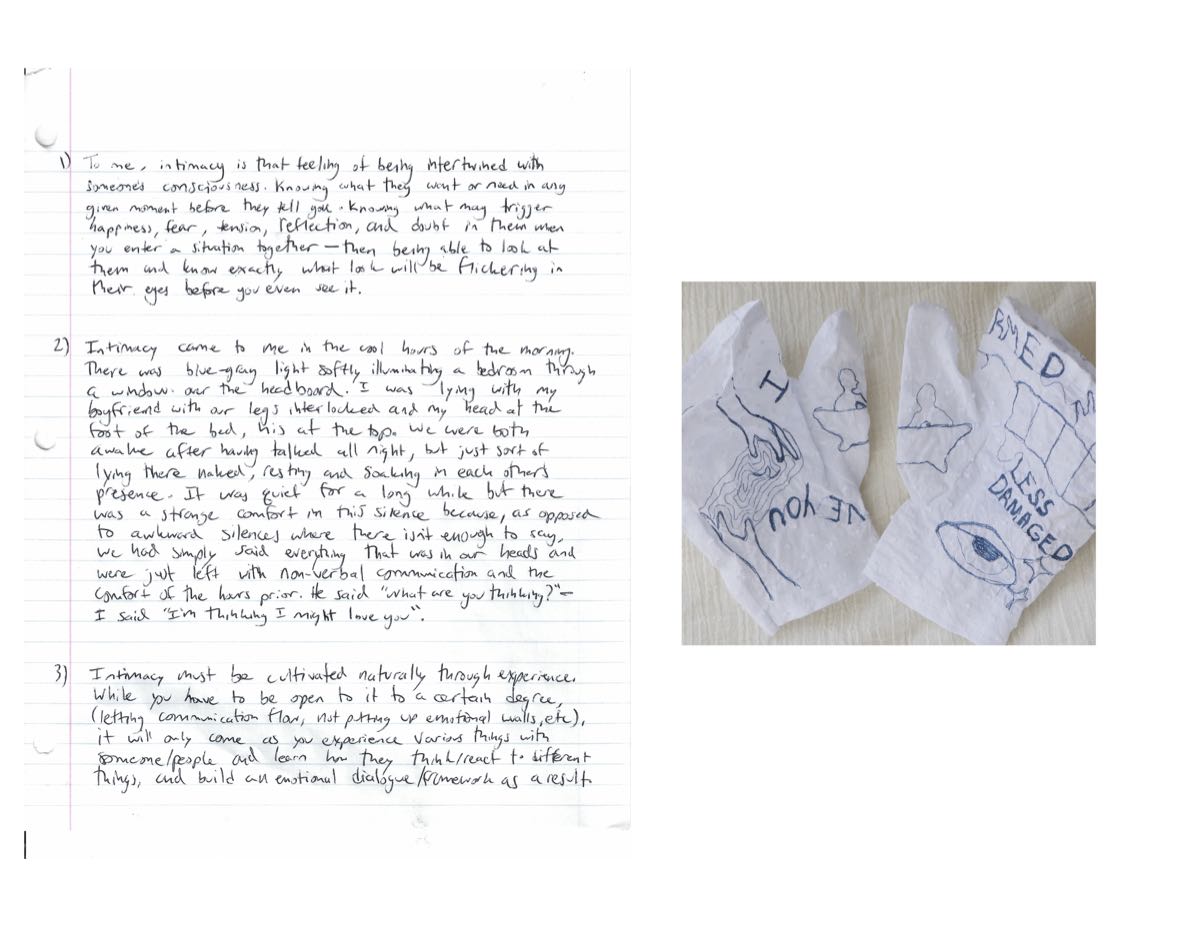 1) To me, intimacy is that feeling of being intertwined with
someone's consciousness. Knowing what they want or need in any
given moment before they tell you. Knowing what may trigger
happiness, fear, tension, reflection, and doubt in them when
you enter a situation together — then being able to look at
them and know exactly what look will be flickering in
their eyes before you even see it.
2) Intimacy came to me in the cool hours of the morning.
There was blue-gray light softly illuminating a bedroom through
a window over the headboard. I was lying with my
boyfriend with our legs interlocked and my head at the
foot of the bed, his at the top. We were both
awake after having talked all night, but just sort of
lying there naked, resting and soaking in each others
presence. It was quiet for a long while but there
was a strange comfort in this silence because, as opposed
to awkward silences where there isn't enough to say,
we had simply said everything that was in our heads and
were just left with non-verbal communication and the
comfort of the hours prior. He said "what are you thinking?" —
I said "I'm thinking I might love you".
3) Intimacy must be cultivated naturally through experience.
While you have to be open to it to a certain degree,
(letting communication flow, not putting up emotional walls, etc),
it will only come as you experience various things with
someone/people and learn how they think/react to different
things, and build an emotional dialogue/framework as a result
I
VE YOU
RMED
M
LESS
DAMAGED